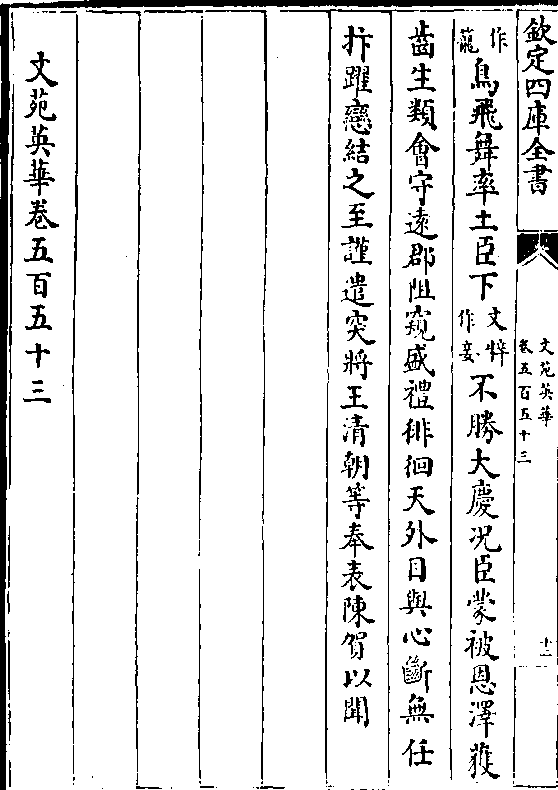 欽定四庫全書
文苑英華
卷五百五十三
十二
作
籠
鳥飛舞率土臣下
文粹
作妾
不勝大慶况臣蒙被恩澤獲
齒生類會守遠郡阻窺盛禮徘徊天外目與心斷無任
抃躍戀結之至謹遣突將王清朝等奉表陳賀以聞
文苑英華卷五百五十三